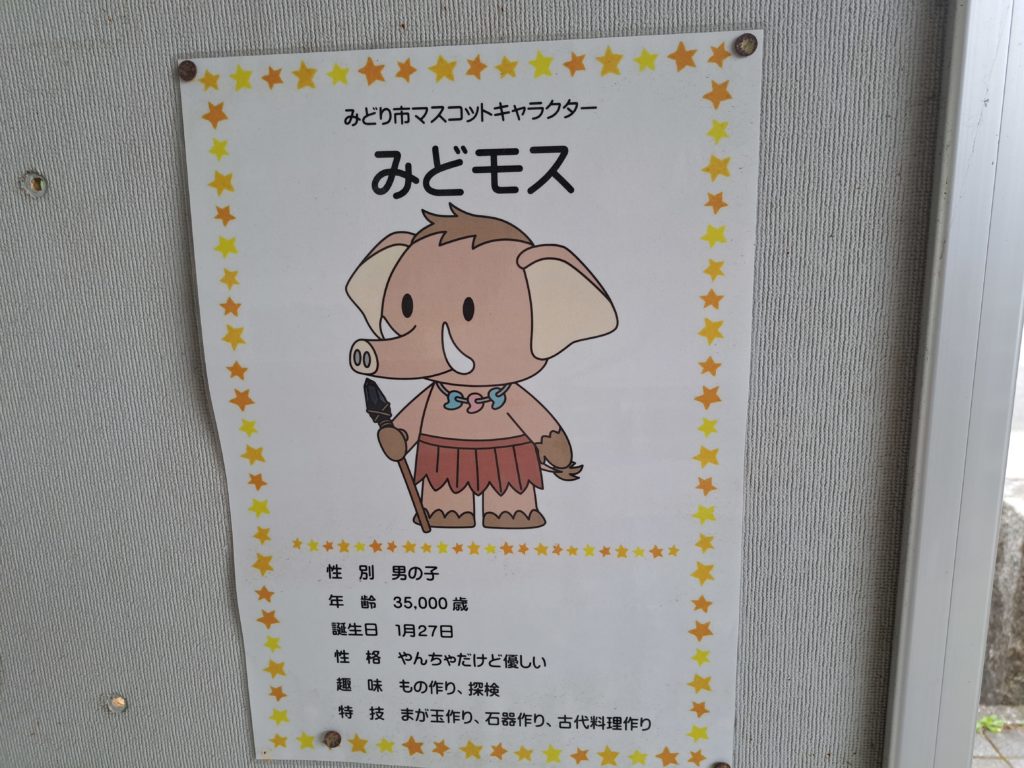 みどり市マスコットキャラクター
みどモス
性別 男の子
年齢 35,000歳
誕生日 1月27日
性格 やんちゃだけど優しい
趣味 もの作り、探検
特技 まが玉作り、石器作り、古代料理作り